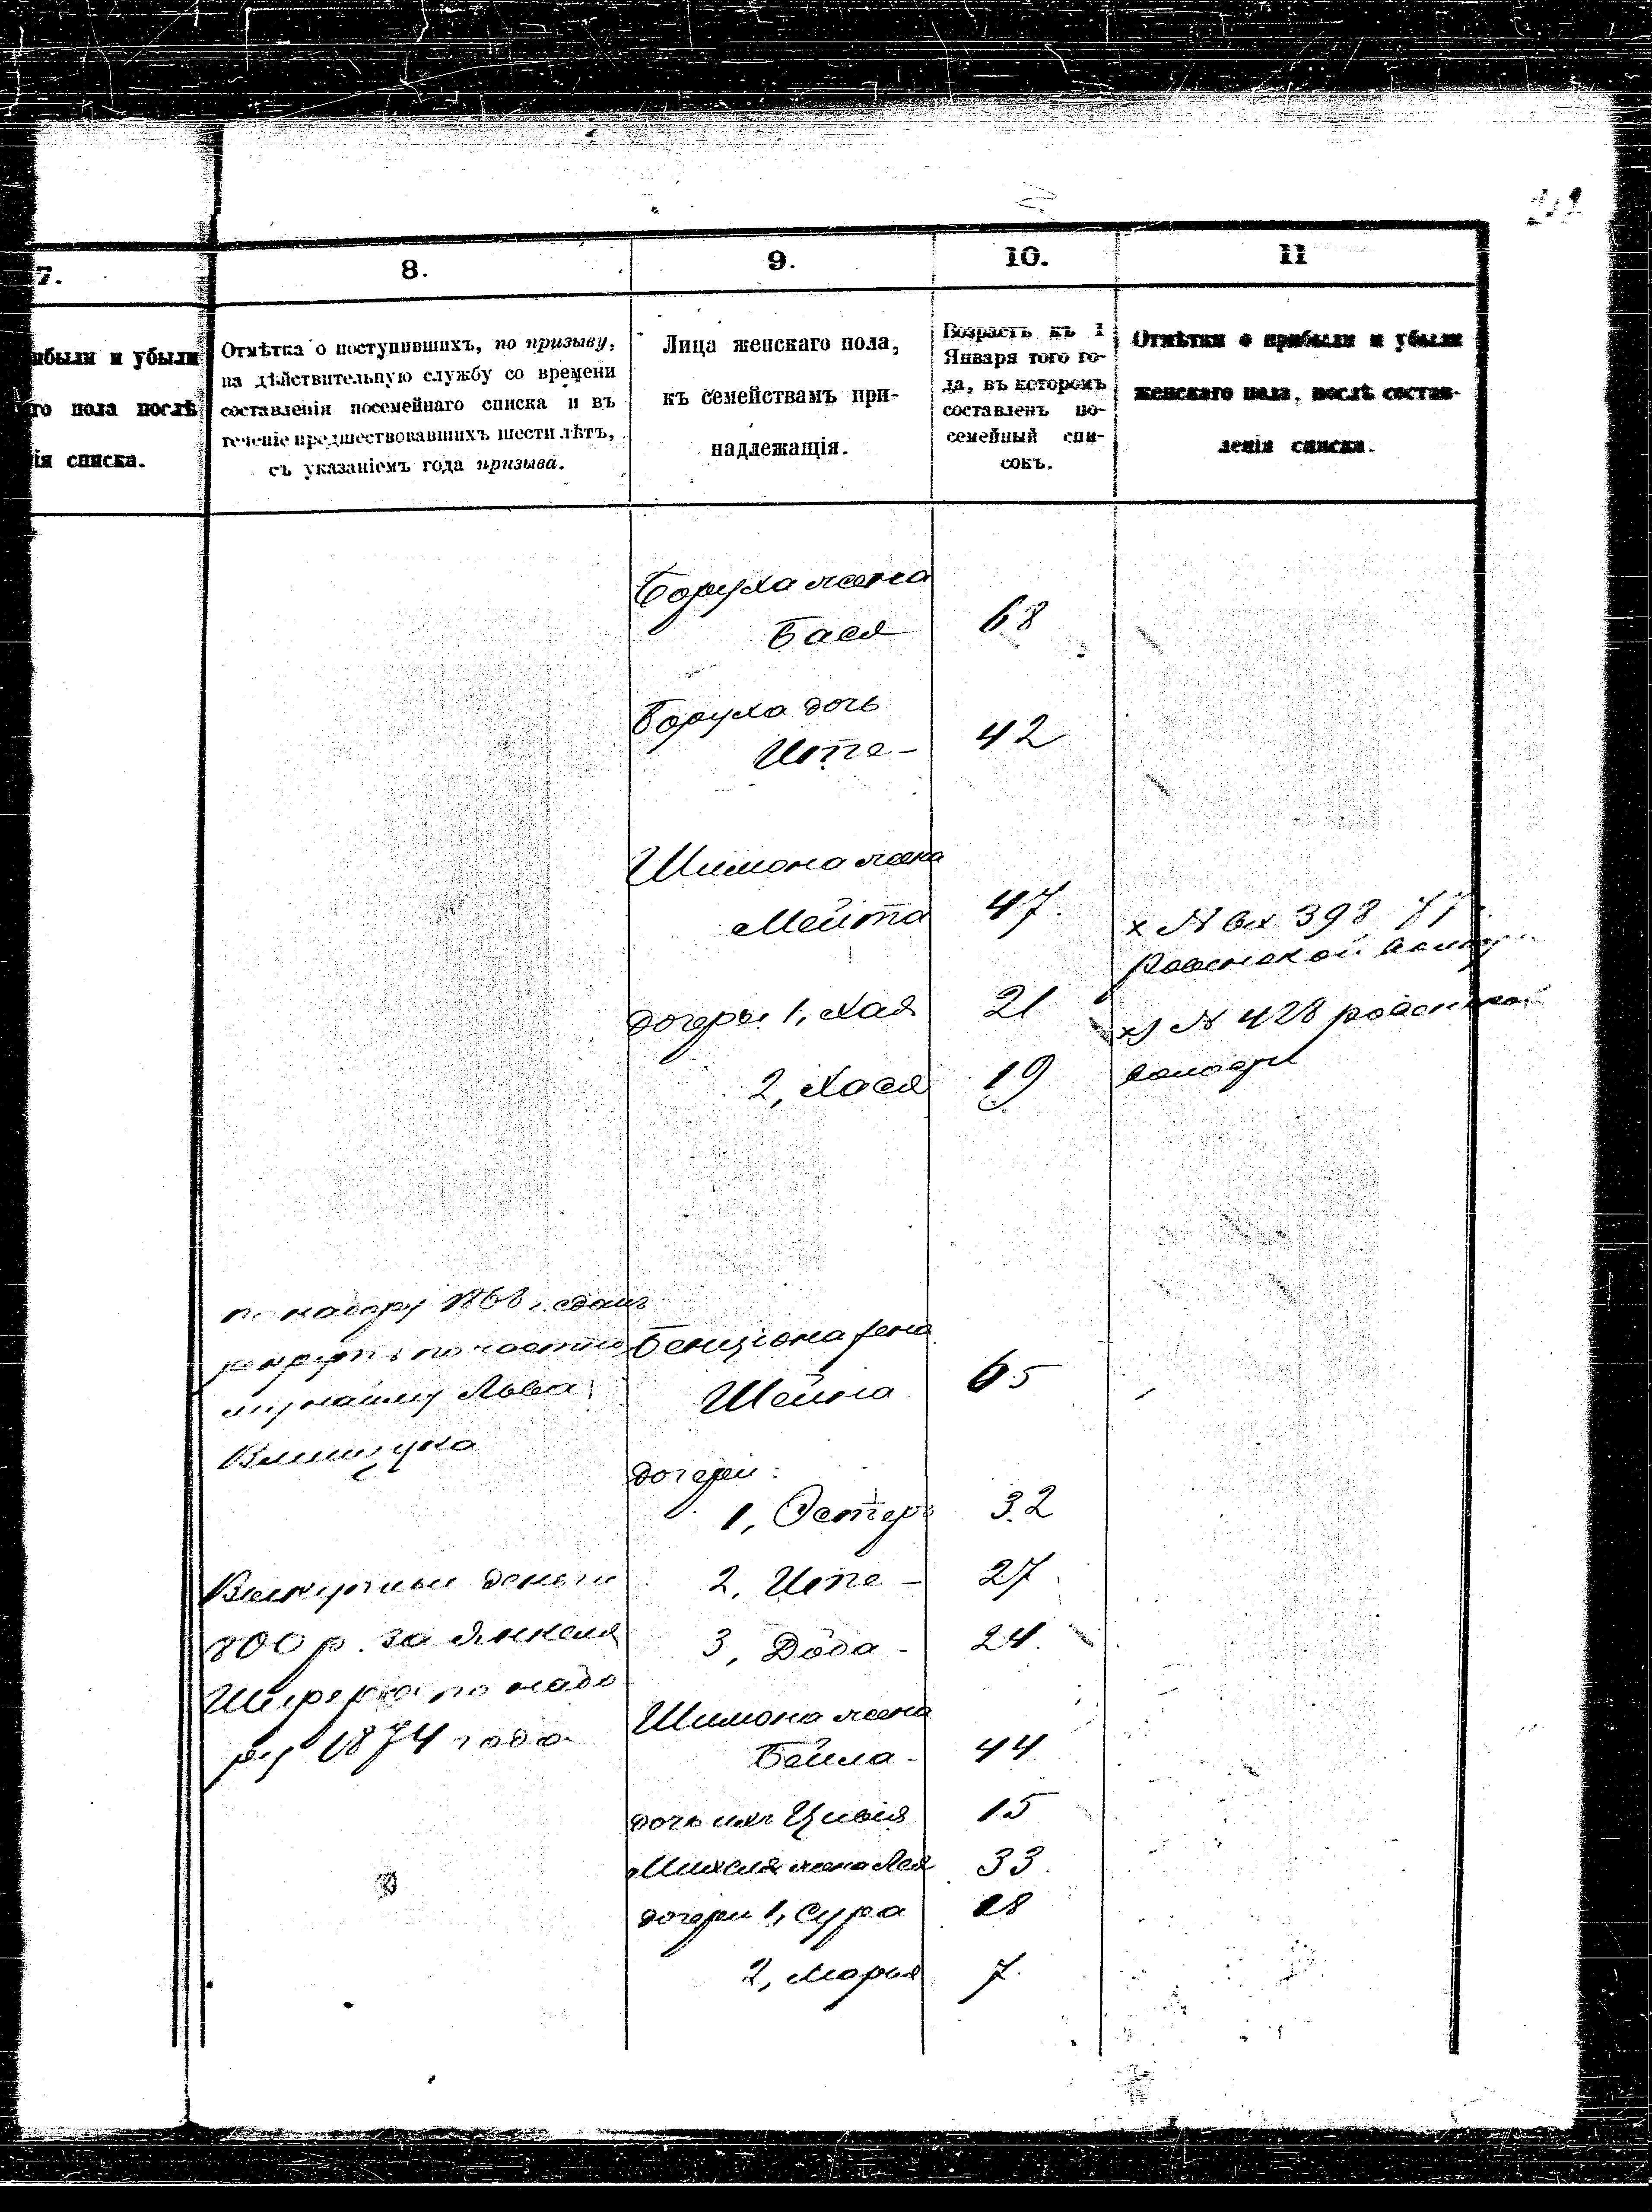 7.
8.
9.
10.
11
ибыли и убыли
го пола послѣ
ія списка.
Отмѣтка о поступившихъ, по призыву,
на дѣйствительную службу со времени
составленія посемейнаго списка и въ
теченіе предшествовавшихъ шести лѣтъ,
съ указаніемъ года призыва.
Лица женскаго пола,
къ семействамъ при-
надлежащія.
Возрастъ къ 1
Января того го-
да, въ которомъ
составленъ по-
семейный спи-
сокъ.
Отмѣтки о прибыли и убыли
женскаго пола, послѣ состав-
ленія списка.
Боруха жена
Бася 68
Боруха дочь
Ите- 42
Шимона жена
Мейта 47.
x № вх 398 77
дочери 1, Хая 21
x) № 428
2, Хася 19
по набору 1868 г. сданъ
Бенціона жена
Шейна 65
найму Льва
дочери:
1, Эстеръ 32
2, Ите - 27
3, Дода - 24.
деньги
800 р. за Янкеля
по набо
ру 1874 года
Шимона жена
Бейла - 44
дочь ихъ Цивія 15
Михеля жена Лея 33.
дочери 1, Сура 18
2, Марья 7.